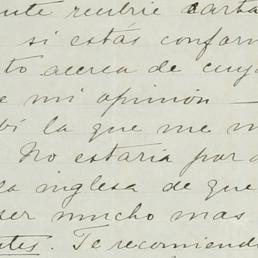 recibir carta
si estás confor
to acerca de cuya
mi opinión —
bí la que me m
No estaría por d
la inglesa de que
ser mucho mas
tes. Te recomiend